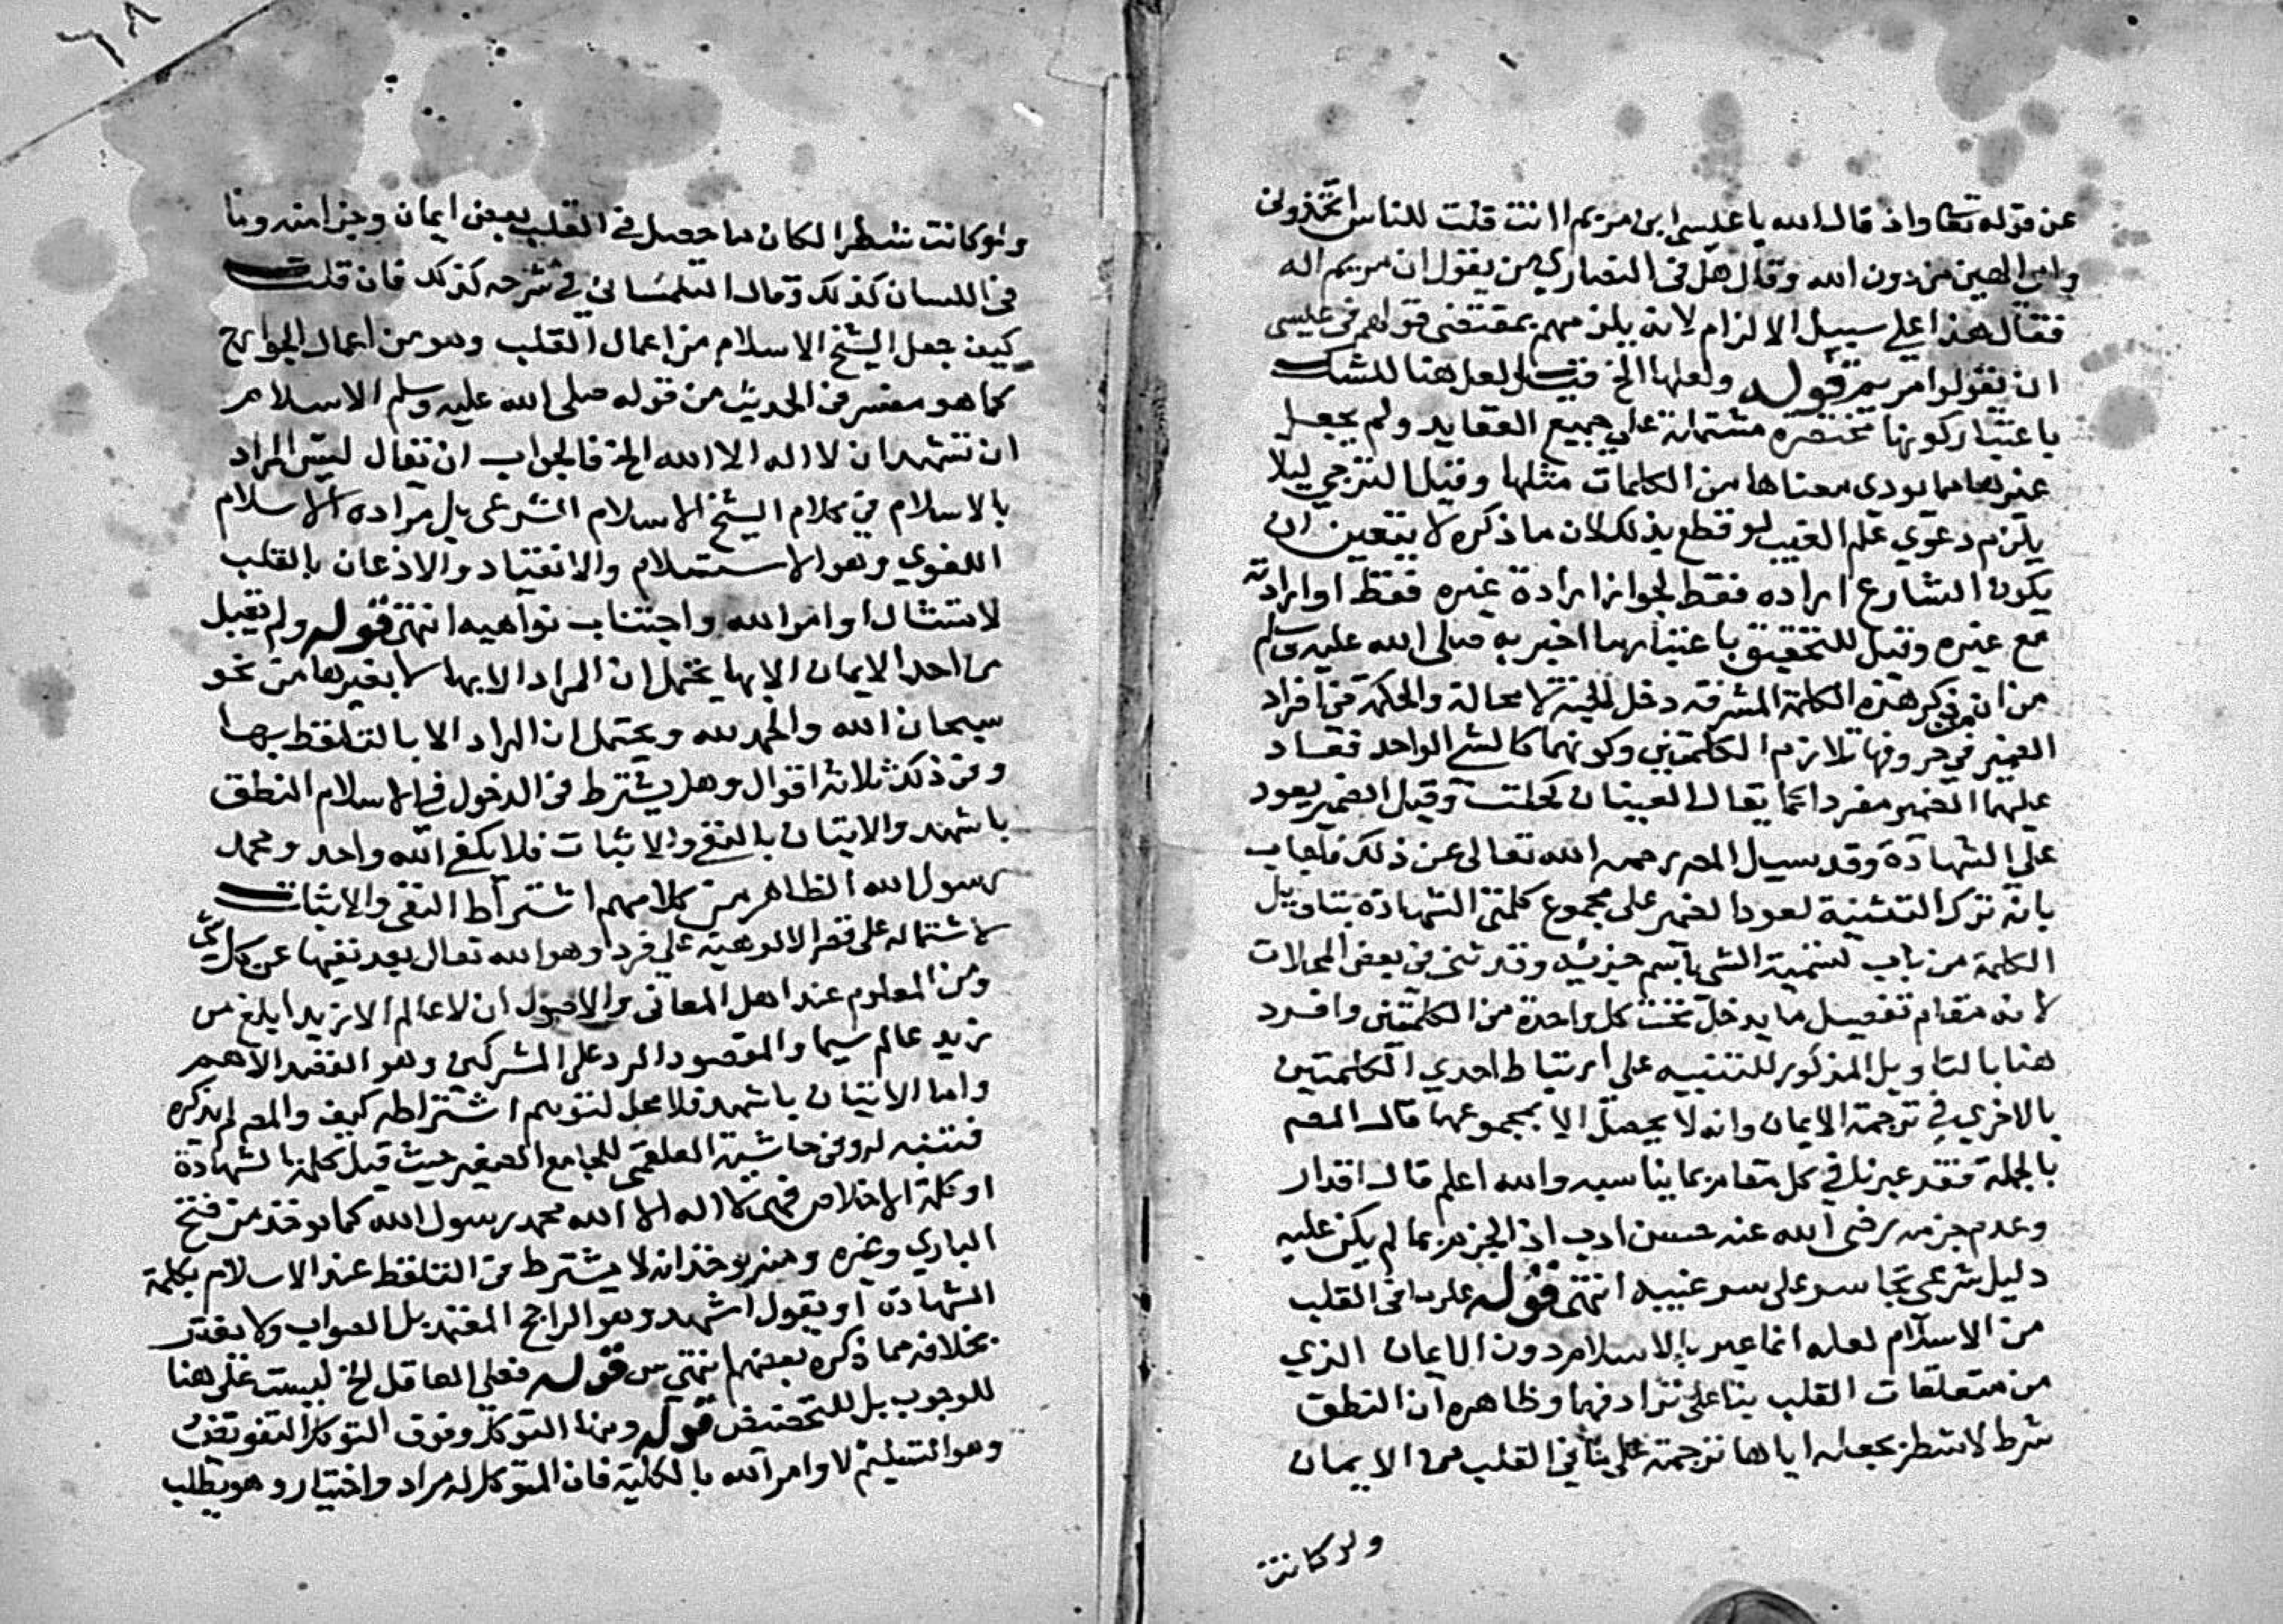 عن قوله تعا واذ قال الله يا عيسى ابن مريم اانت قلت للناس اتخذونى
وامى الهين من دون الله وقال هل فى النصارى من يقول ان مريم اله
فقال هذا على سبيل الالزام لانه يلزمهم بمقتضى قولهم فى عيسى
ان يقولوا مريم قوله ولعلها الخ قيل لعل هنا للشك
باعتبار كونها مختصرة مشتملة على جميع العقايد ولم يجعل
غيرها مما يودى معناها من الكلمات مثلها وقيل للترجي ليلا
يلزم دعوي علم الغيب لو قطع بذلك لان ما ذكره لا يتعين ان
يكون الشارع اراده فقط لجواز ارادة غيره فقط او ارادته
مع غيره وقيل للتحقيق باعتبار ما اخبر به صلى الله عليه وسلم
من ان من ذكر هذه الكلمة المشرفة دخل الجنة لا محالة والحكمة فى افراد
الضمير فى حروفها تلازم الكلمتين وكونهما كالشى الواحد فعاد
عليهما الضمير مفردا كما يقال العينان كحلت وقيل الضمير يعود
على الشهادة وقد سيل المص رحمه الله تعالى عن ذلك فاجاب
بانه ترك التثنية لعود الضمير على مجموع كلمتى الشهادة بتاويل
الكلمة من باب تسمية الشى باسم جزئه وقد ثنى فى بعض المحلات
لانه مقام تفصيل ما يدخل تحت كل واحدة من الكلمتين وافرد
هنا بالتاويل المذكور للتنبيه على ارتباط احدي الكلمتين
بالاخري في ترجمة الايمان وانه لا يحصل الا بمجموعهما قال المص
بالجملة فقد عبرنا في كل مقام بما يناسبه والله اعلم قال اقدار
وعدم جزمه رضى الله عنه حسن ادب اذ الجزم بما لم يكن عليه
دليل شرعى تجاسر على سر غيبه انتهى قوله على ما فى القلب
من الاسلام لعله انما عبر بالاسلام دون الايمان الذي
من متعلقات القلب بنا على ترادفهما وظاهره ان النطق
شرط لا شطر بجعله اياها ترجمة على ما في القلب من الايمان
ولو كانت
ولو كانت شطرا لكان ما حصل فى القلب بعض ايمان وجزا منه وما
فى اللسان كذلك وقال التلمسانى فى شرحه كذلك فان قلت
كيف جعل الشيخ الاسلام من اعمال القلب وهو من اعمال الجوارح
كما هو مفسر فى الحديث من قوله صلى الله عليه وسلم الاسلام
ان تشهد ان لا اله الا الله الخ فالجواب ان تقال ليس المراد
بالاسلام في كلام الشيخ الاسلام الشرعى بل مراده الاسلام
اللغوي وهو الاستسلام والانقياد والاذعان بالقلب
لامتثال اوامر الله واجتناب نواهيه انتهى قوله ولم يقبل
من احد الايمان الا بها يحتمل ان المراد الا بها لا بغيرها من نحو
سبحان الله والحمد لله ويحتمل ان المراد الا بالتلفظ بها
وفى ذلك ثلاثة اقوال وهل يشترط فى الدخول في الاسلام النطق
باشهد والاتيان بالنفى والاثبات فلا يكفى الله واحد ومحمد
رسول الله الظاهر من كلامهم اشتراط النفى والاثبات
لاشتماله على قصر الالوهية على فرد وهو الله تعالى بعد نفيها عن كل شى
ومن المعلوم عند اهل المعانى والاصول ان لا عالم الا زيد ابلغ من
زيد عالم سيما والمقصود الرد على المشركين وهو القصد الاهم
واما الاتيان باشهد فلا محل لتوهم اشتراطه كيف والمص لم يذكره
فتنبه له وفى حاشية العلقمى للجامع الصغير حيث قيل كلمة الشهادة
او كلمة الاخلاص فهى لا اله الا الله محمد رسول الله كما يوخذ من فتح
الباري وغيره ومنه يوخذ انه لا يشترط فى التلفظ عند الاسلام بكلمة
الشهادة او يقول اشهد وهو الراجح المعتمد بل الصواب ولا يغتر
بخلافه مما ذكره بعضهم انتهي من قوله فعلى العاقل الخ ليست على هنا
للوجوب بل للتحضيض قوله ومنها التوكل وفوق التوكل التفويض
وهو التسليم لاوامر الله بالكلية فان المتوكل له مراد واختيار وهو يطلب